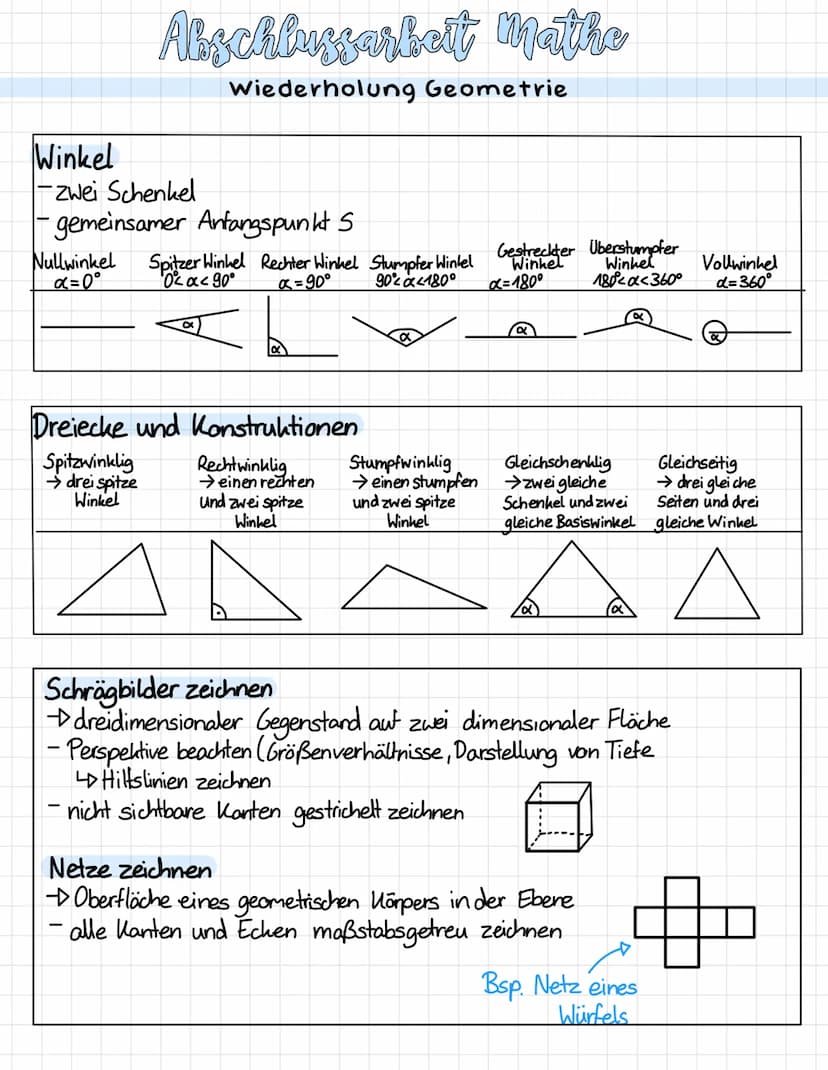 Abschlussarbeit Mathe
Wiederholung Geometrie
Winkel
- zwei Schenkel
- gemeinsamer Anfangspunkt S
Nullwinkel α=0°
Spitzer Winkel 0°<α<90°
Rechter Winkel α=90°
Stumpfer Winkel 90°<α<180°
Gestreckter Winkel α=180°
Überstumpfer Winkel 180°<α<360°
Vollwinkel α=360°
α α α α α α
Dreiecke und Konstruktionen
Spitzwinklig
→ drei spitze
Winkel
Rechtwinklig
→ einen rechten
und zwei spitze
Winkel
Stumpfwinklig
→ einen stumpfen
und zwei spitze
Winkel
Gleichschenklig
→ zwei gleiche
Schenkel und zwei
gleiche Basiswinkel
Gleichseitig
→ drei gleiche
Seiten und drei
gleiche Winkel
α α
Schrägbilder zeichnen
→ dreidimensionaler Gegenstand auf zwei dimensionaler Fläche
- Perspektive beachten (Größenverhältnisse, Darstellung von Tiefe
↳ Hilfslinien zeichnen
- nicht sichtbare Kanten gestrichelt zeichnen
Netze zeichnen
→ Oberfläche eines geometrischen Körpers in der Ebene
- alle Kanten und Ecken maßstabsgetreu zeichnen
Bsp. Netz eines
Würfels